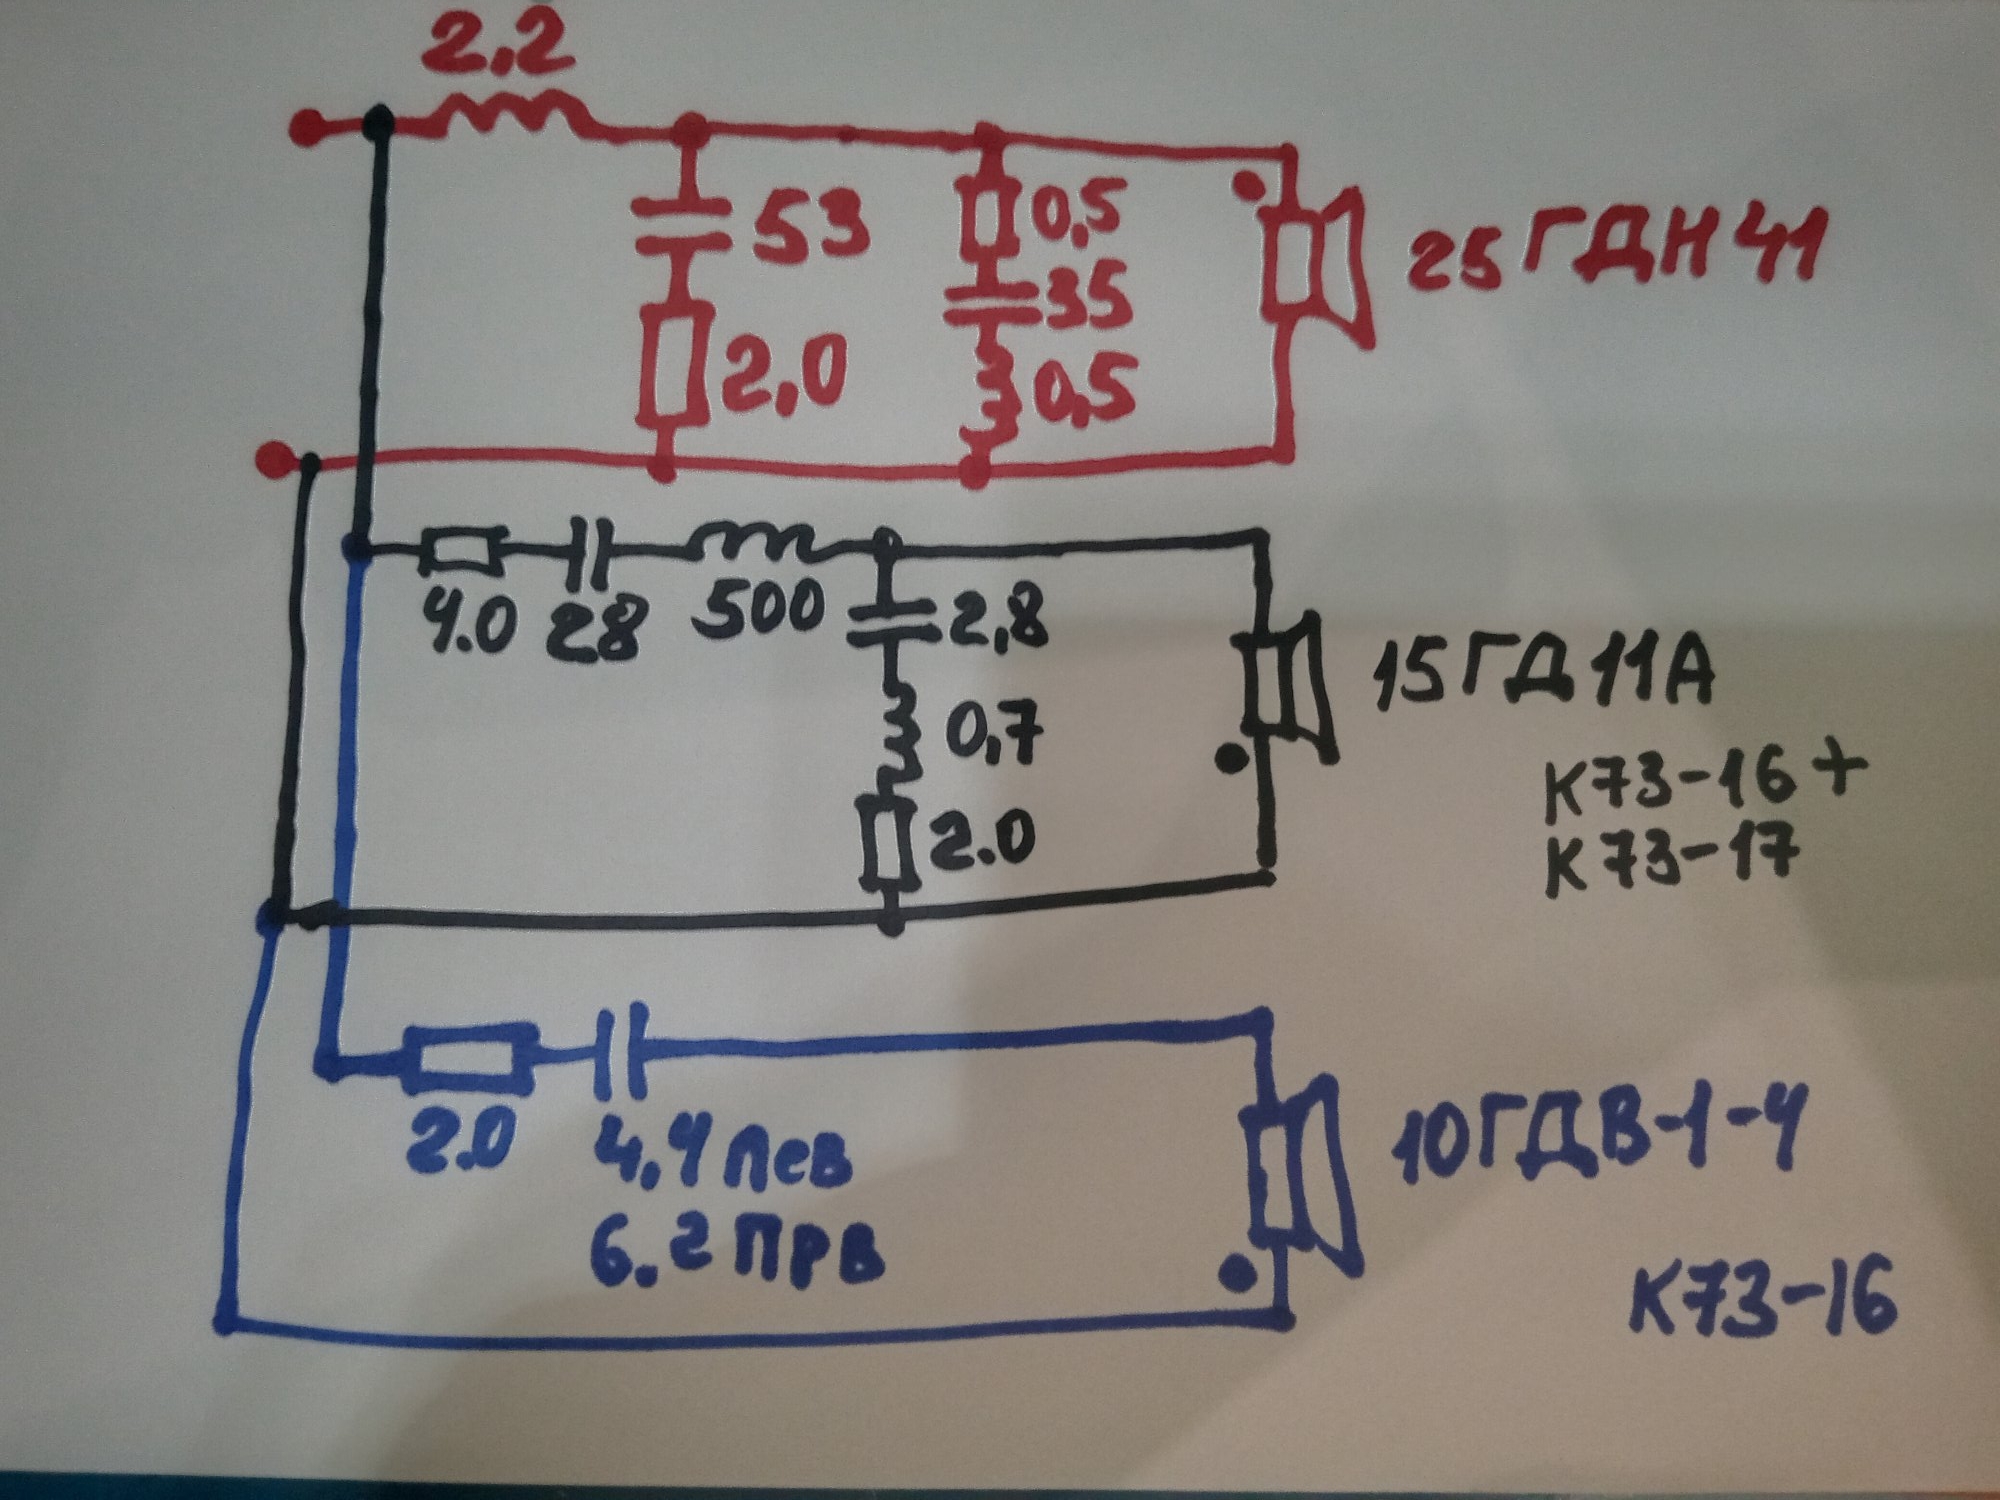 2,2
53
2,0
0,5
35
0,5
25ГДН41
4.0
28
500
2,8
0,7
2.0
15ГД11А
К73-16+
К73-17
2.0
4,4 лев
6.2 прв
10ГДВ-1-4
К73-16